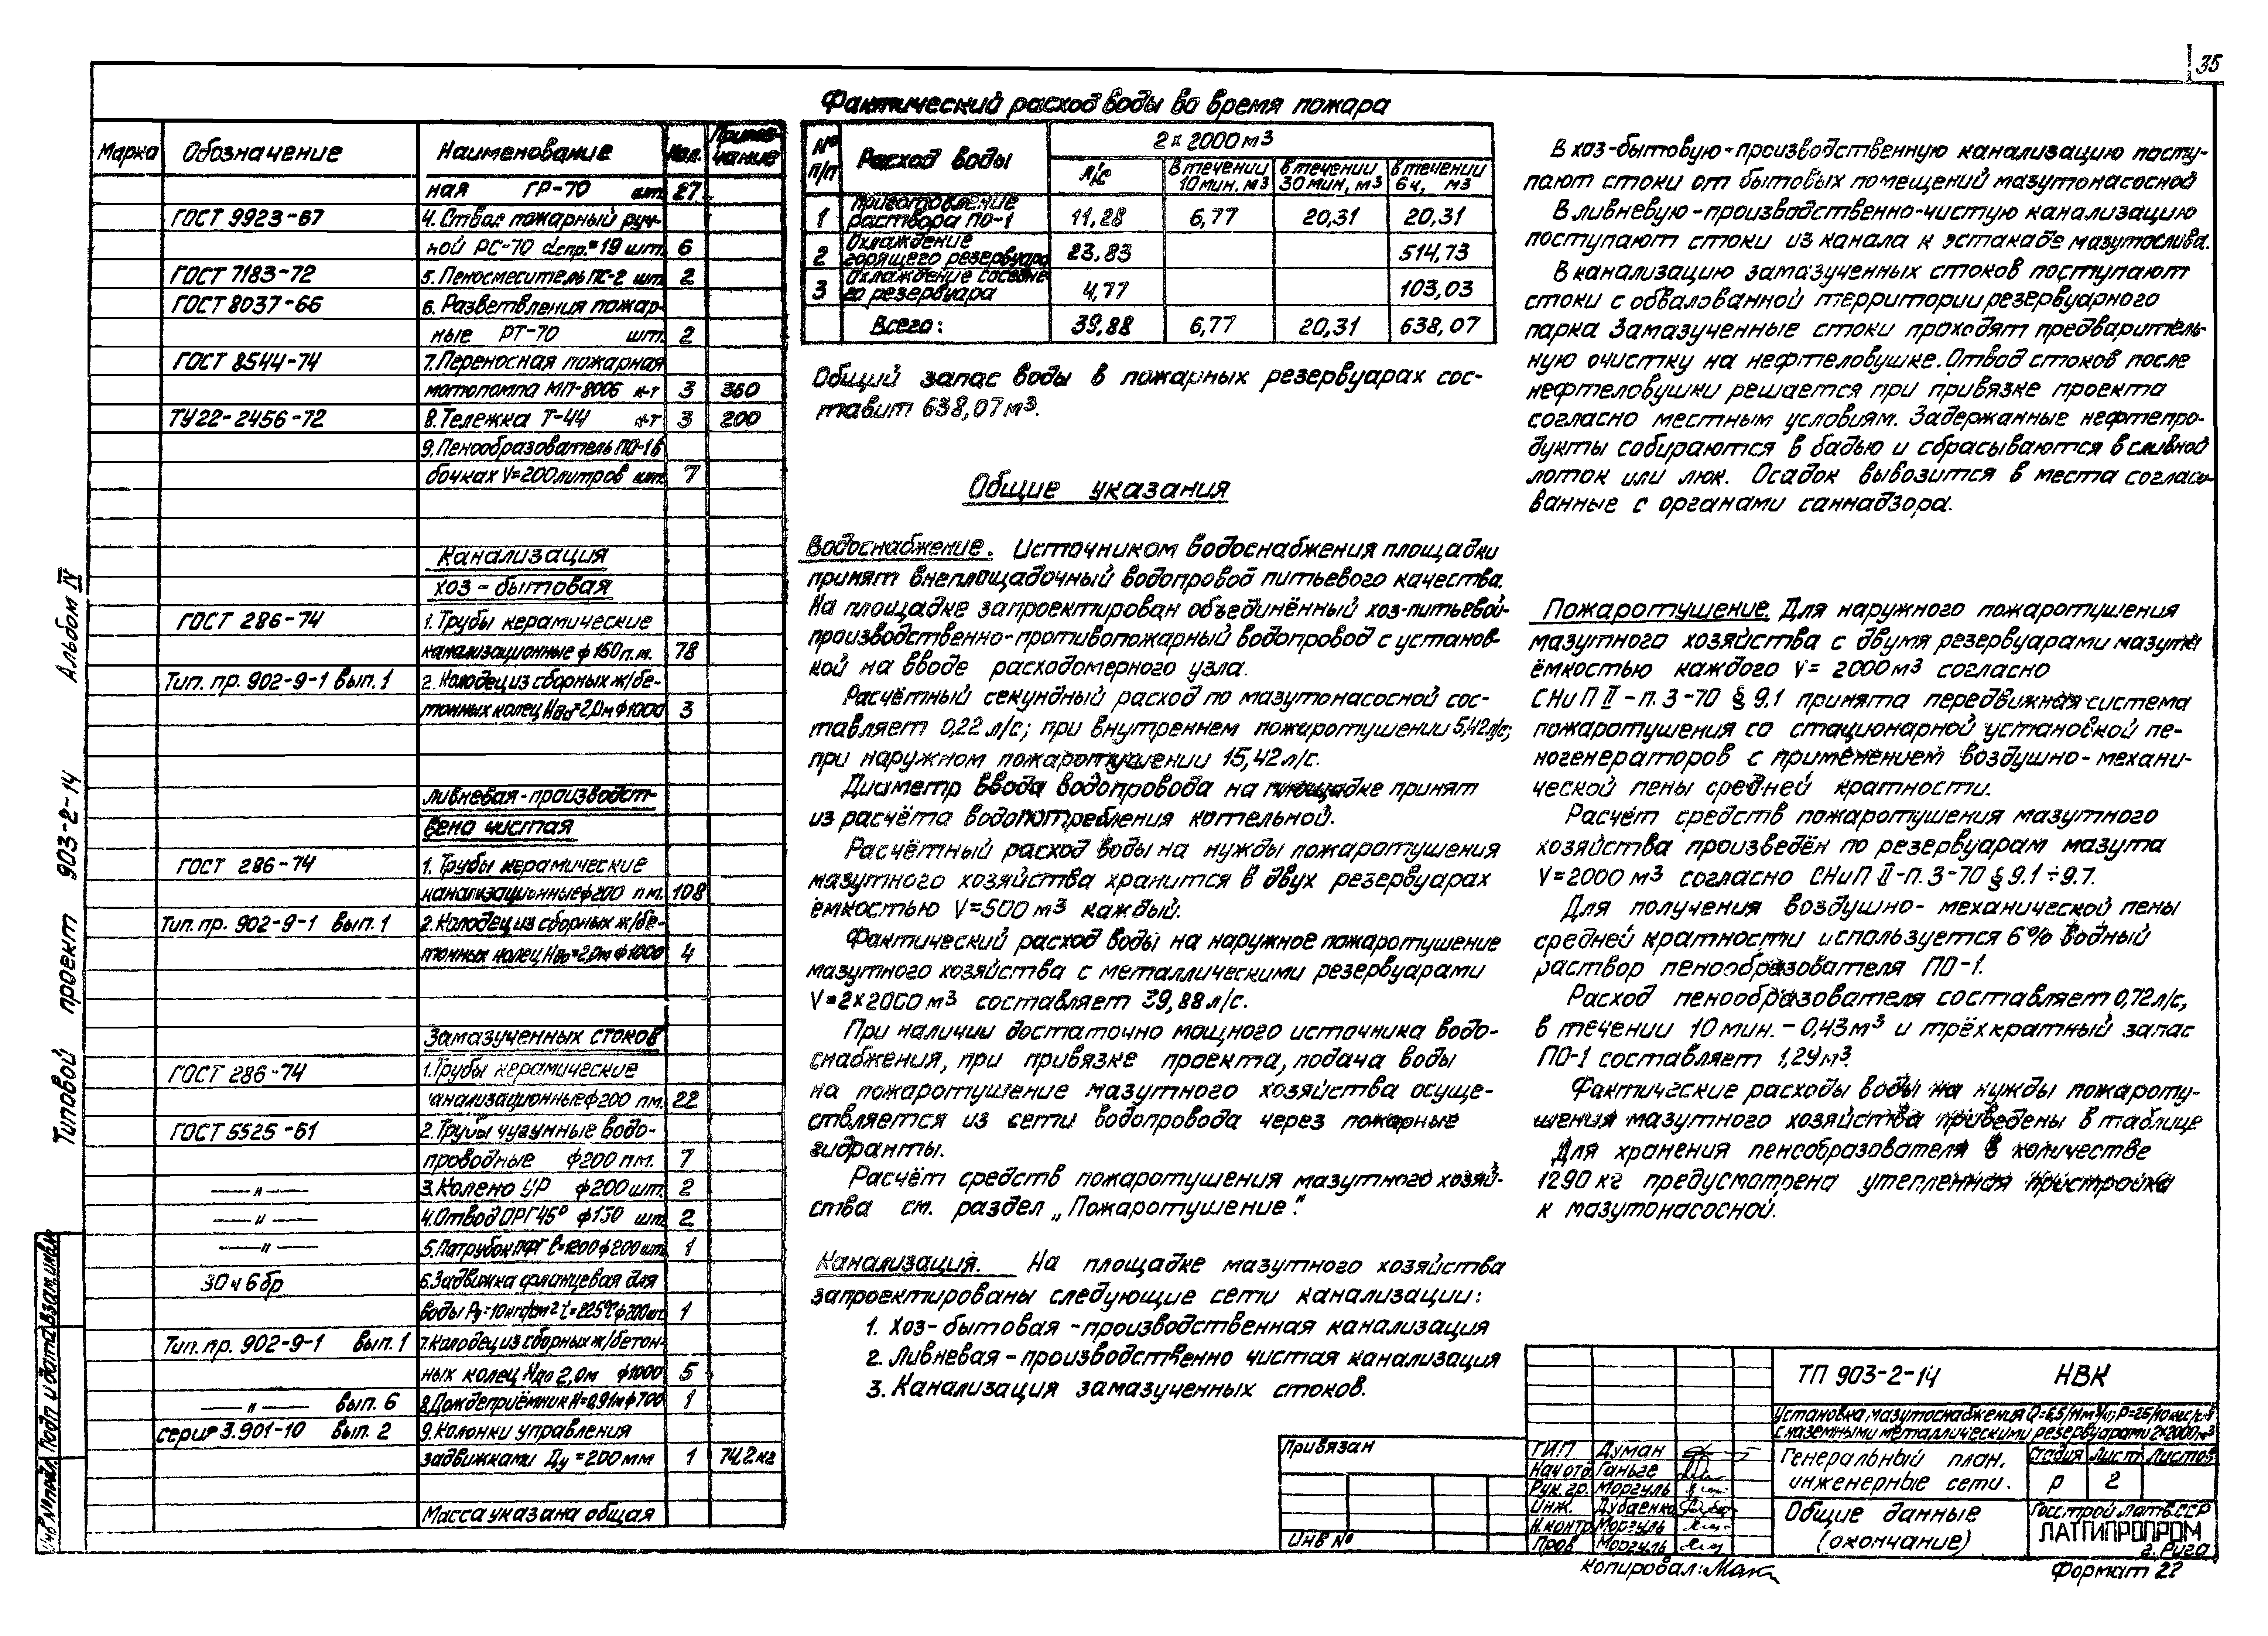 35
Марка Обозначение Наименование Кол. Примечание
ная ГР-70 шт. 27
ГОСТ 9923-67 4. Ствол пожарный руч-
ной РС-70 dспр.=19 шт. 6
ГОСТ 7183-72 5. Пеносмеситель ПС-2 шт. 2
ГОСТ 8037-66 6. Разветвления пожар-
ные РТ-70 шт. 2
ГОСТ 8544-74 7. Переносная пожарная
мотопомпа МП-800Б к-т 3 360
ТУ22-2456-72 8. Тележка Т-44 к-т 3 200
9. Пенообразователь ПО-1 в
бочках V=200 литров шт. 7
Канализация
хоз-бытовая
ГОСТ 286-74 1. Трубы керамические
канализационные ф 150 п.м. 78
Тип. пр. 902-9-1 вып. 1 2. Колодец из сборных ж/бе-
тонных колец =2,0м ф1000 3
Ливневая-производст-
вено чистая
ГОСТ 286-74 1. Трубы керамические
канализационные ф200 п.м. 108
Тип. пр. 902-9-1 вып. 1 2. Колодец из сборных ж/бе-
тонных колец =2,0м ф1000 4
Замазученных стоков
ГОСТ 286-74 1. Трубы керамические
канализационные ф200 п.м. 22
ГОСТ 5525-61 2. Трубы чугунные водо-
проводные ф200 п.м. 7
—"— 3. Колено УР ф200 шт. 2
—"— 4. Отвод ОРГ45° ф150 шт. 2
—"— 5. Патрубок ПФГ ℓ=1200 ф200 шт. 1
30ч6бр 6. Задвижка фланцевая для
воды Ру=10кгс/см² t=225°С ф200 шт. 1
Тип. пр. 902-9-1 вып. 1 7. Колодец из сборных ж/бетон-
ных колец Hдо 2,0м ф1000 5
—"— вып. 6 8. Дождеприёмник H=0,91м ф700 1
серия 3.901-10 вып. 2 9. Колонки управления
задвижками Ду=200мм 1 74,2кг
Масса указана общая
Фактический расход воды во время пожара
№ п/п Расход воды 2 x 2000 м3
л/с В течении 10 мин, м3 В течении 30 мин, м3 В течении 6ч, м3
1 Приготовление раствора ПО-1 11,28 6,77 20,31 20,31
2 Охлаждение горящего резервуара 23,83 514,73
3 Охлаждение соседнего резервуара 4,77 103,03
Всего: 39,88 6,77 20,31 638,07
Общий запас воды в пожарных резервуарах сос-
тавит 638,07 м3.
Общие указания
Водоснабжение. Источником водоснабжения площадки
принят внеплощадочный водопровод питьевого качества.
На площадке запроектирован объединённый хоз-питьевой-
производственно-противопожарный водопровод с установ-
кой на вводе расходомерного узла.
Расчётный секундный расход по мазутонасосной сос-
тавляет 0,22 л/с; при внутреннем пожаротушении 5,42 л/с;
при наружном пожаротушении 15,42 л/с.
Диаметр ввода водопровода на площадке принят
из расчёта водопотребления котельной.
Расчётный расход воды на нужды пожаротушения
мазутного хозяйства хранится в двух резервуарах
ёмкостью V=500 м3 каждый.
Фактический расход воды на наружное пожаротушение
мазутного хозяйства с металлическими резервуарами
V=2x2000 м3 составляет 39,88 л/с.
При наличии достаточно мощного источника водо-
снабжения, при привязке проекта, подача воды
на пожаротушение мазутного хозяйства осуще-
ствляется из сети водопровода через пожарные
гидранты.
Расчёт средств пожаротушения мазутного хозяй-
ства см. раздел „Пожаротушение".
Канализация. На площадке мазутного хозяйства
запроектированы следующие сети канализации:
1. Хоз-бытовая-производственная канализация
2. Ливневая-производственно чистая канализация
3. Канализация замазученных стоков.
В хоз-бытовую-производственную канализацию посту-
пают стоки от бытовых помещений мазутонасосной
В ливневую-производственно-чистую канализацию
поступают стоки из канала к эстакаде мазутослива.
В канализацию замазученных стоков поступают
стоки с обвалованной территории резервуарного
парка Замазученные стоки проходят предваритель-
ную очистку на нефтеловушке. Отвод стоков после
нефтеловушки решается при привязке проекта
согласно местным условиям. Задержанные нефтепро-
дукты собираются в бадью и сбрасываются в сливной
лоток или люк. Осадок вывозится в места согласо-
ванные с органами саннадзора.
Пожаротушение. Для наружного пожаротушения
мазутного хозяйства с двумя резервуарами мазута
ёмкостью каждого V= 2000 м3 согласно
СНиП II-п.3-70 § 9.1 принята передвижная система
пожаротушения со стационарной установкой пе-
ногенераторов с применением воздушно-механи-
ческой пены средней кратности.
Расчёт средств пожаротушения мазутного
хозяйства произведён по резервуарам мазута
V=2000 м3 согласно СНиП II-п.3-70 § 9.1 ÷ 9.7.
Для получения воздушно-механической пены
средней кратности используется 6% водный
раствор пенообразователя ПО-1.
Расход пенообразователя составляет 0,72 л/с,
в течении 10 мин. - 0,43 м3 и трёхкратный запас
ПО-1 составляет 1,29 м3.
Фактические расходы воды на нужды пожароту-
шения мазутного хозяйства приведены в таблице
Для хранения пенообразователя в количестве
1290 кг предусмотрена утепленная пристройка
к мазутонасосной.
Типовой проект 903-2-14 Альбом IV
Инв № подл. Подп и дата Взам. инв. №
Привязан
Инв №
ТП 903-2-14 НВК
Установка мазутоснабжения
с наземными металлическими резервуарами 2x2000 м3
ГИП Думан
Нач отд. Ганьге
Рук. гр. Моргуль
Инж. Дубаенко
Н.контр Моргуль
Пров Моргуль
Генеральный план,
инженерные сети.
Стадия Лист Листов
р 2
Общие данные
(окончание)
Госстрой Латв.ССР
ЛАТГИПРОПРОМ
г. Рига
Копировал:
Формат 22